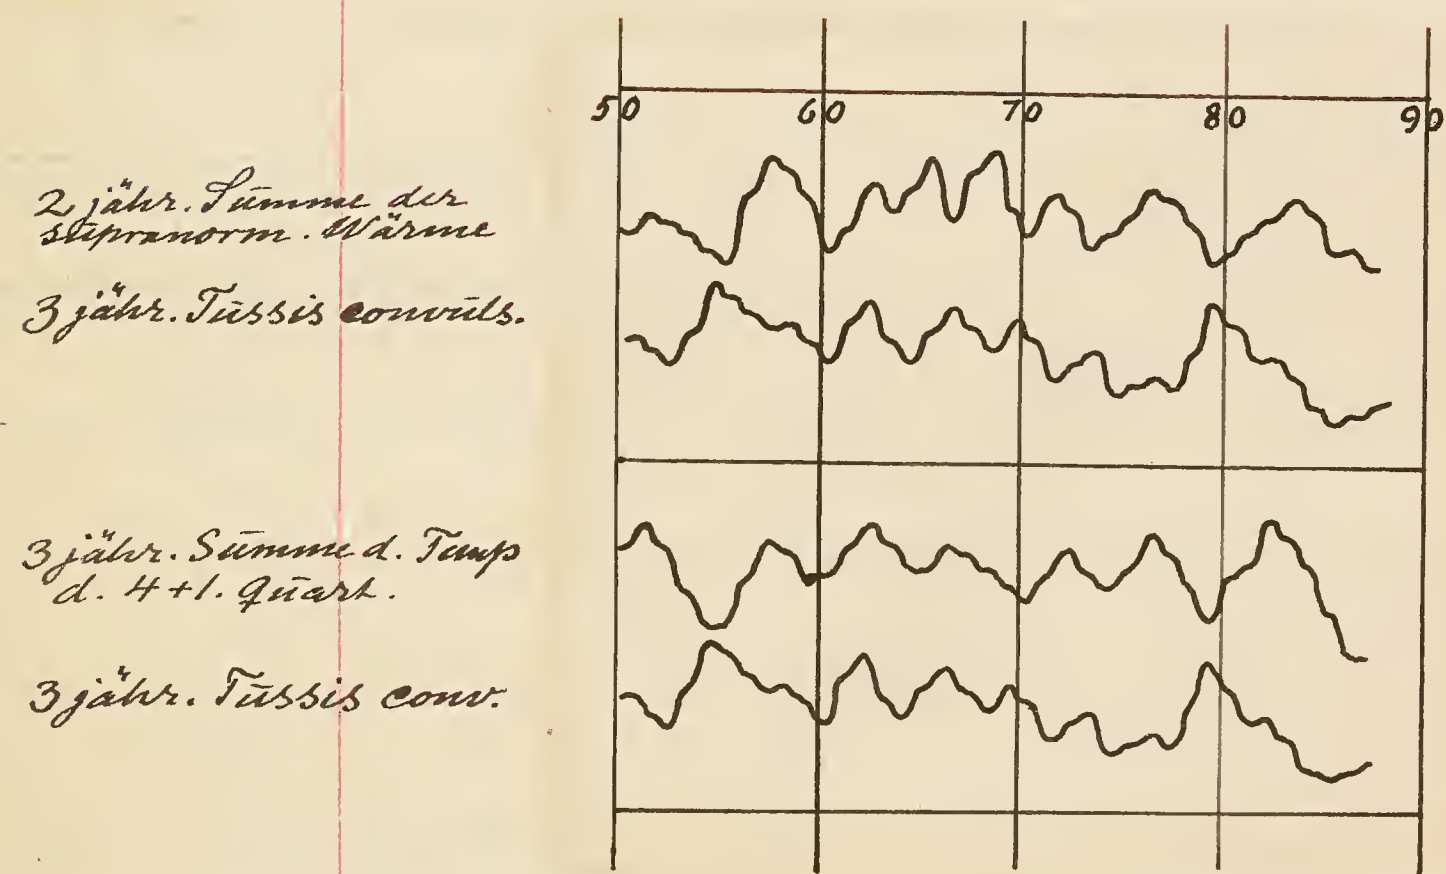 50 60 70 80 90
2 jähr. Sūmme der
sūpranorm. Wärme
3 jähr. Tūssis convūls.
3 jähr. Sūmme d. Temp
d. 4+1. Qūart.
3 jähr. Tūssis conv.